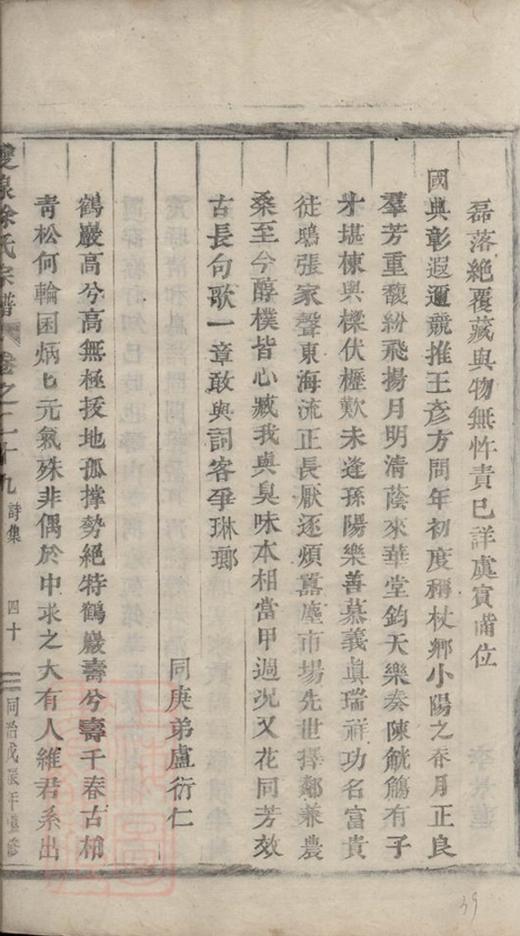 磊落絶覆藏與物無忤責已詳虞賓備位
國典彰遐邇競推王彥方問年初度稱杖鄉小陽之春月正良
羣芳重馥紛飛揚月明清蔭來華堂鈞天樂奏陳觥觴有子
才堪棟與樑伏櫪歎未逢孫陽樂善慕義眞瑞祥功名富貴
徒鴟張家聲東海流正長厭逐煩囂塵市場先世擇鄰兼農
桑至今醇樸皆心臧我與臭味本相當甲週況又花同芳效
古長句歌一章敢與詞客爭琳瑯
同庚弟盧衍仁
鶴巖高兮高無極拔地孤撐勢絕特鶴巖壽兮壽千春古栁
青松何輪囷炳七元氣殊非偶於中求之大有人維君系出
雙泉徐氏宗譜 卷之二十九 詩集 四十 同治戊辰年重修
39